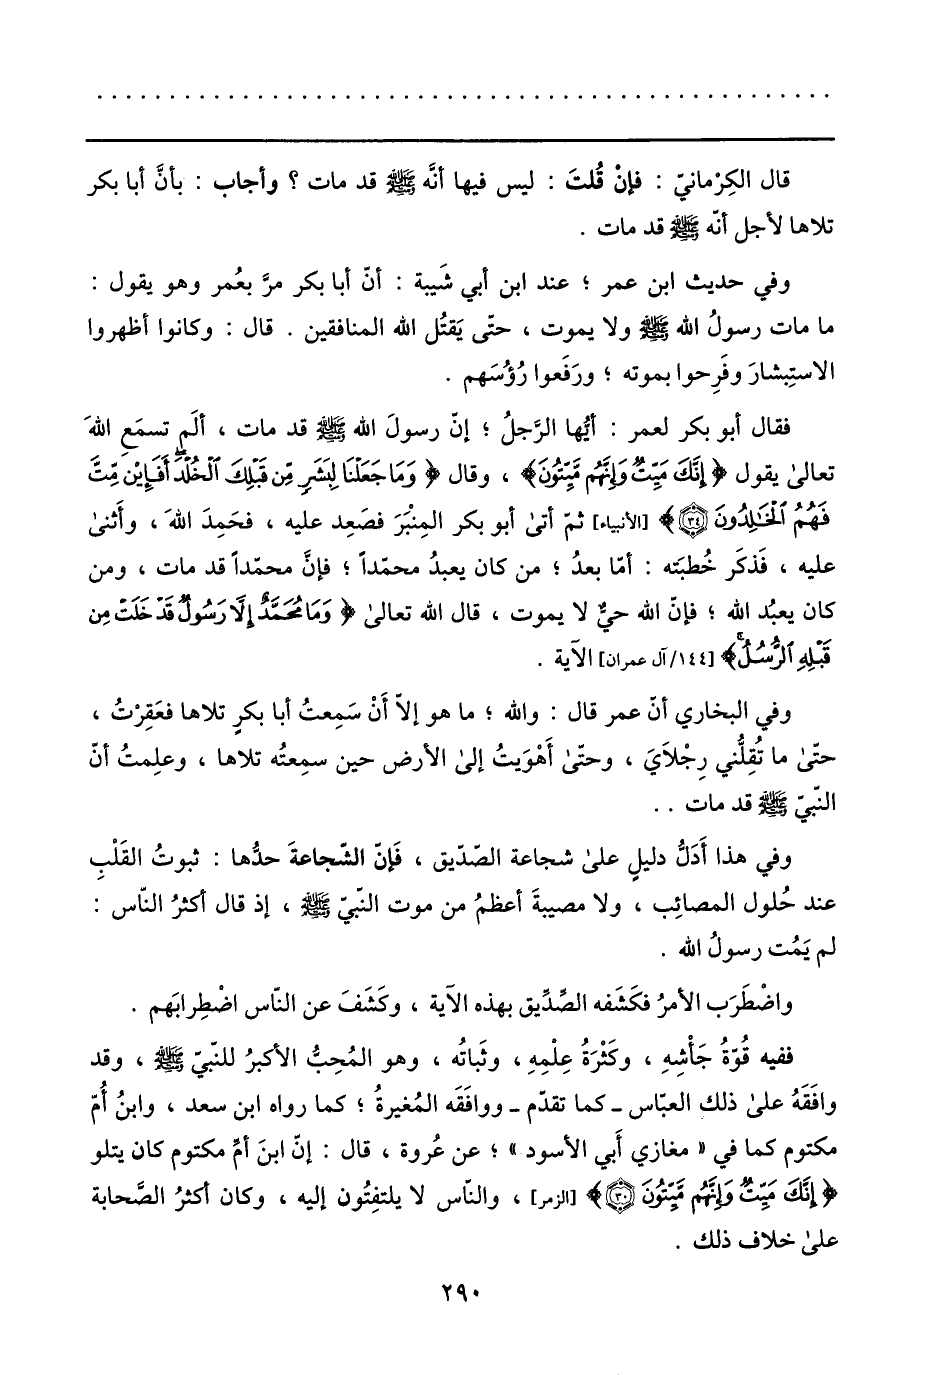 قال الكِرْمانيّ : فإنْ قُلتَ : ليس فيها أنَّه ﷺ قد مات ؟ وأجاب : بأنَّ أبا بكر
تلاها لأجل أنّه ﷺ قد مات .
وفي حديث ابن عمر ؛ عند ابن أبي شَيبة : أنّ أبا بكر مرَّ بعُمر وهو يقول :
ما مات رسولُ الله ﷺ ولا يموت ، حتّى يَقتُل الله المنافقين . قال : وكانوا أظهروا
الاستِبشارَ وفَرِحوا بموته ؛ ورَفَعوا رُؤُسَهم .
فقال أبو بكر لعمر : أيُّها الرَّجلُ ؛ إنّ رسولَ الله ﷺ قد مات ، ألَم تسمَعِ اللهَ
تعالىٰ يقول ﴿ إِنَّكَ مَيِّتٌ وَإِنَّهُم مَّيِّتُونَ﴾ ، وقال ﴿ وَمَا جَعَلْنَا لِبَشَرٍ مِّن قَبْلِكَ ٱلْخُلْدَ ۖ أَفَإِيْن مِّتَّ
فَهُمُ ٱلْخَٰلِدُونَ ٣٤﴾ [الأنبياء] ثمّ أتىٰ أبو بكر المِنْبَرَ فصَعِد عليه ، فحَمِدَ اللهَ ، وأثنىٰ
عليه ، فَذكَر خُطبَته : أمّا بعدُ ؛ من كان يعبدُ محمّداً ؛ فإنَّ محمّداً قد مات ، ومن
كان يعبُد الله ؛ فإنّ الله حيٌّ لا يموت ، قال الله تعالىٰ ﴿ وَمَا مُحَمَّدٌ إِلَّا رَسُولٌ قَدْ خَلَتْ مِن
قَبْلِهِ ٱلرُّسُلُ ۚ﴾ [١٤٤/آل عمران] الآية .
وفي البخاري أنّ عمر قال : والله ؛ ما هو إلاّ أَنْ سَمِعتُ أبا بكرٍ تلاها فعَقِرْتُ ،
حتّىٰ ما تُقِلُّني رِجْلاَيَ ، وحتّىٰ أَهْوَيتُ إلىٰ الأرض حين سمِعتُه تلاها ، وعلِمتُ أنّ
النّبيّ ﷺ قد مات . .
وفي هذا أَدَلُّ دليلٍ علىٰ شجاعة الصّدّيق ، فَإنّ الشّجاعةَ حدُّها : ثبوتُ القَلْبِ
عند حُلول المصائِب ، ولا مصيبةَ أعظمُ من موت النّبيّ ﷺ ، إذ قال أكثرُ النّاس :
لم يَمُت رسولُ الله .
واضْطَرَب الأمرُ فكَشَفه الصِّدِّيق بهذه الآية ، وكَشَفَ عن النّاس اضْطِرابَهم .
ففيه قُوّةُ جَأْشِهِ ، وكَثْرَةُ عِلْمِهِ ، وثَباتُه ، وهو المُحِبُّ الأكبرُ للنّبيّ ﷺ ، وقد
وافَقَهُ علىٰ ذلك العبّاس ـ كما تقدّم ـ ووافقَه المُغيرةُ ؛ كما رواه ابن سعد ، وابنُ أُمّ
مكتوم كما في « مغازي أَبي الأسود » ؛ عن عُروة ، قال : إنّ ابنَ أمِّ مكتوم كان يتلو
﴿ إِنَّكَ مَيِّتٌ وَإِنَّهُم مَّيِّتُونَ ٣٠﴾ [الزمر] ، والنّاس لا يلتفِتُون إليه ، وكان أكثرُ الصَّحابة
علىٰ خلاف ذلك .
٢٩٠